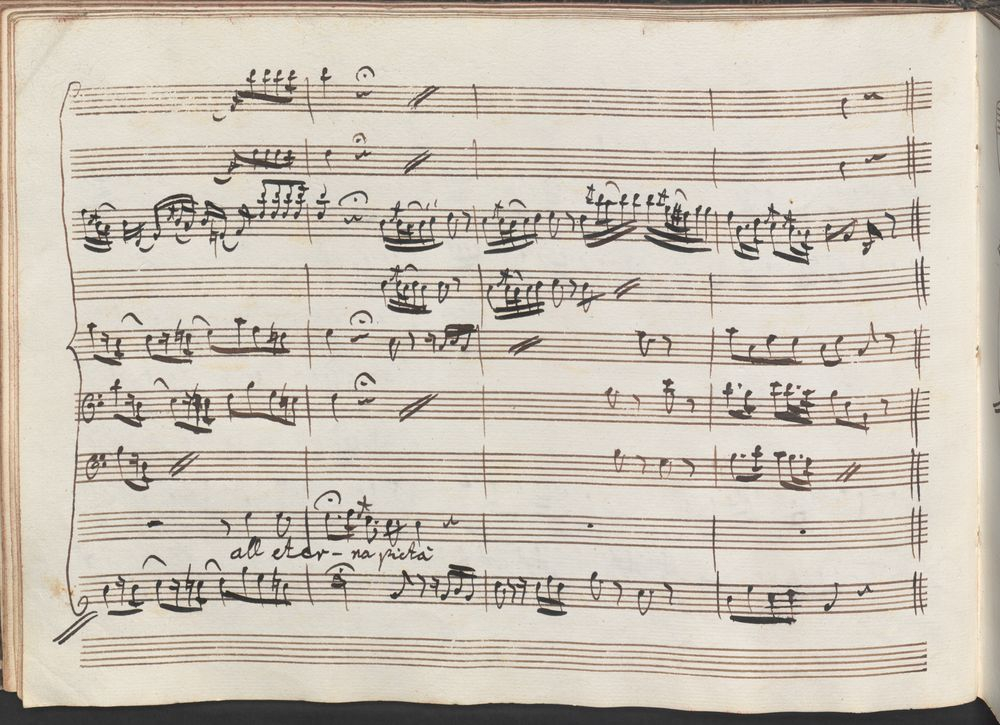 all eter-na pietà